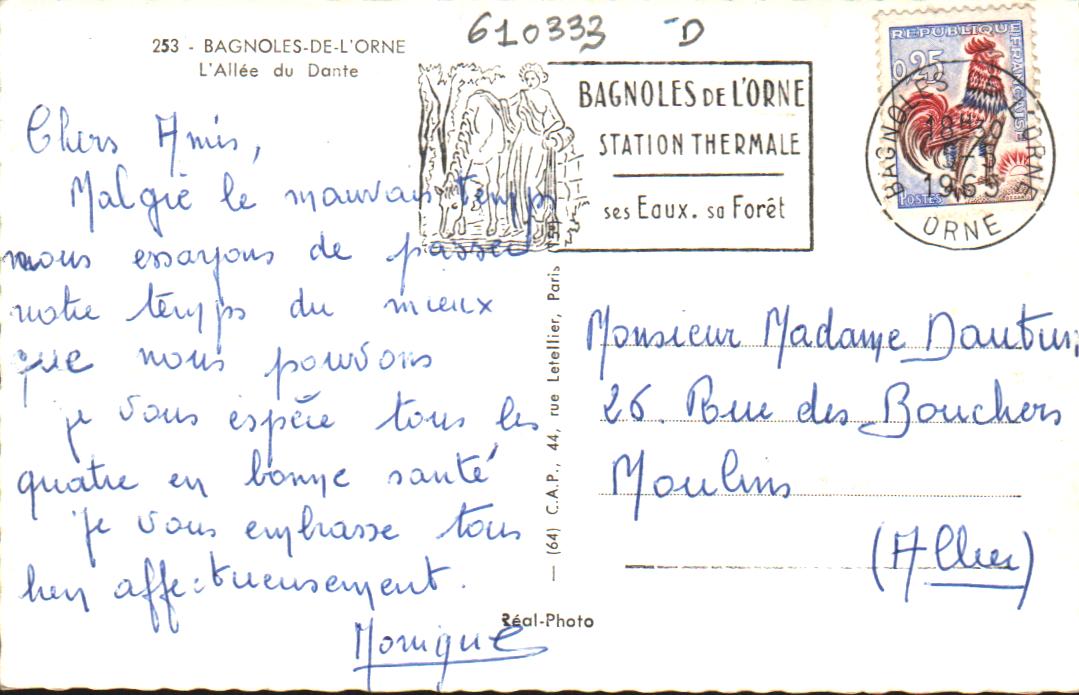 610333 -D
253 - BAGNOLES-DE-L'ORNE
L'Allée du Dante
BAGNOLES DE L'ORNE
STATION THERMALE
ses Eaux. sa Forêt
REPUBLIQUE FRANÇAISE
0,25
POSTES
BAGNOLES DE L'ORNE
18H30
1965
ORNE
Chers Amis,
Malgré le mauvais temps
nous essayons de passer
notre temps du mieux
que nous pouvons
je vous espère tous les
quatre en bonne santé
Je vous embrasse tous
bien affectueusement.
Monique
(64) C.A.P., 44, rue Letellier, Paris (15e)
Réal-Photo
Monsieur Madame
26. Rue des Bouchers
Moulins
(Allier)